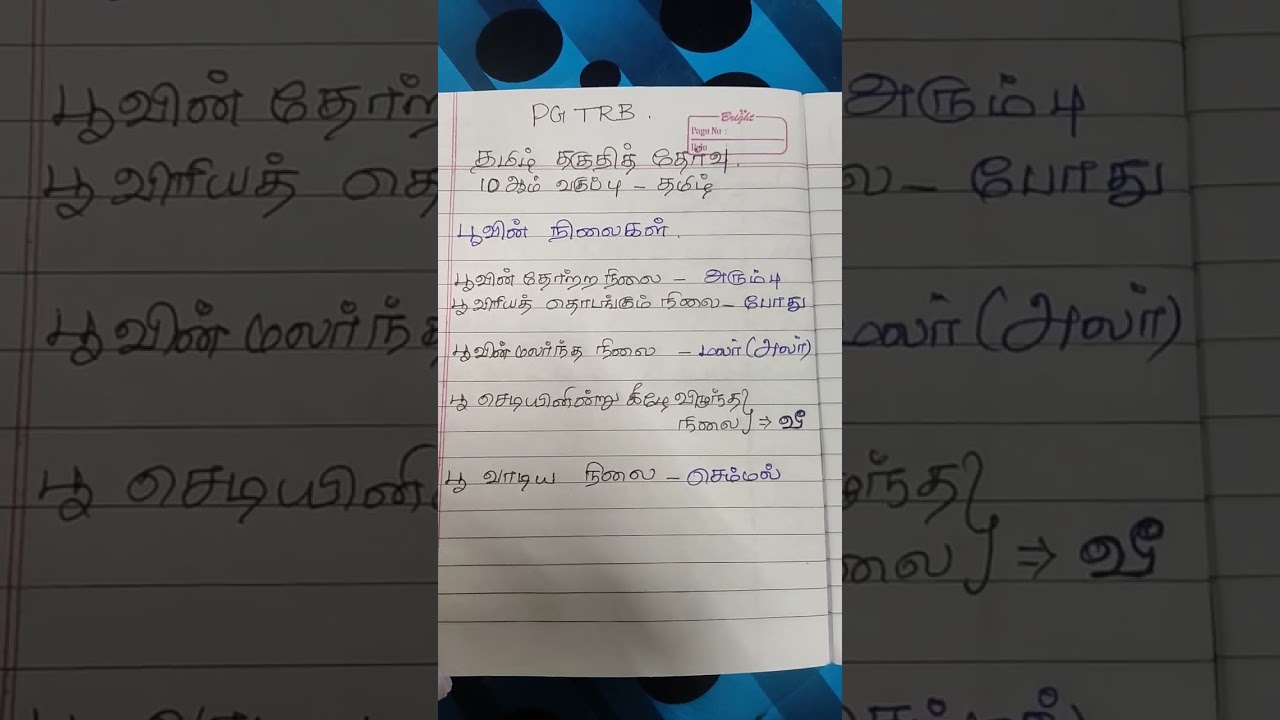 PG TRB.
Bright
Page No :
Date
தமிழ் தகுதித் தேர்வு.
10 ஆம் வகுப்பு - தமிழ்
பூவின் நிலைகள்.
பூவின் தோற்ற நிலை - அரும்பு
பூ விரியத் தொடங்கும் நிலை - போது
பூவின் மலர்ந்த நிலை - மலர் (அலர்)
பூ செடியினின்று கீழே விழுந்த
நிலை ⇒ வீ
பூ வாடிய நிலை - செம்மல்